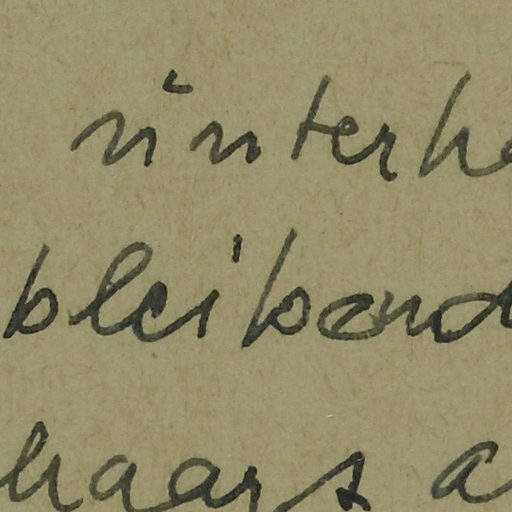 unterha
bleibend
haars a